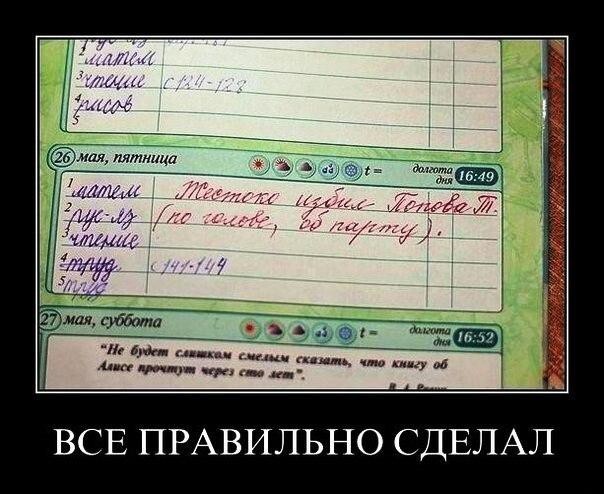 2 матем
3 чтение с 124-128
4 рисов
5
26 мая, пятница t = долгота дня 16:49
1 матем Жестоко избил Попова Т.
2 рус-яз (по голове, об парту).
3 чтение
4 труд с 141-144
5 труд
27 мая, суббота t = долгота дня 16:52
"Не будет слишком смелым сказать, что книгу об
Алисе прочтут через сто лет".
ВСЕ ПРАВИЛЬНО СДЕЛАЛ